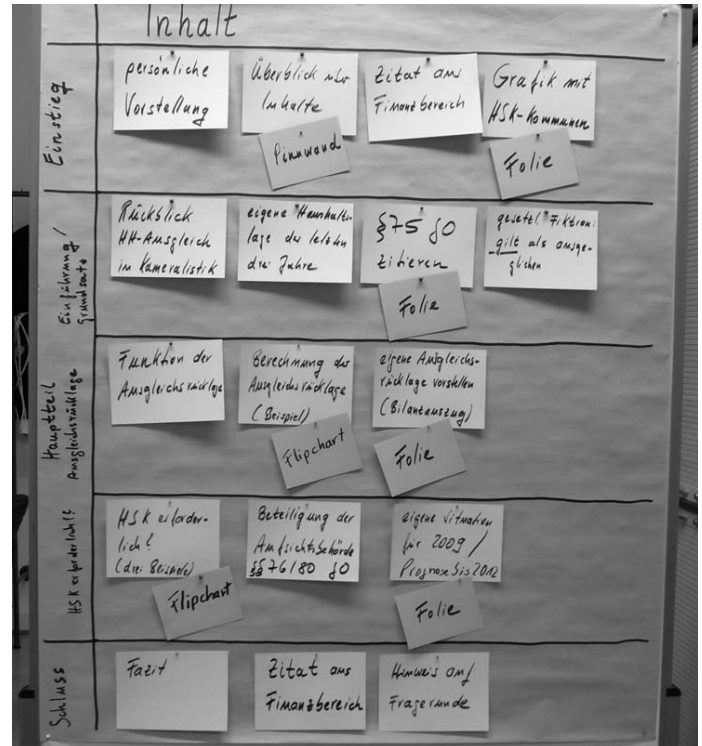 Inhalt
Einstieg
persönliche
Vorstellung
Überblick über
Inhalte
Pinnwand
Zitat aus
Finanzbereich
Grafik mit
HSK-Kommunen
Folie
Einführung /
Grundsatz
Rückblick
HH-Ausgleich
in Kameralistik
eigene Haushalts-
lage der letzten
drei Jahre
§75 GO
zitieren
Folie
gesetzl. Fiktion:
gilt als ausge-
glichen
Hauptteil
Ausgleichsrücklage
Funktion der
Ausgleichsrücklage
Berechnung der
Ausgleichsrücklage
(Beispiel)
Flipchart
eigene Ausgleichs-
rücklage vorstellen
(Bilanzauszug)
Folie
HSK erforderlich?
HSK erforder-
lich?
(drei Beispiele)
Flipchart
Beteiligung der
Aufsichtsbehörde
§§ 76/80 GO
eigene Situation
für 2009 /
Prognose bis 2012
Folie
Schluss
Fazit
Zitat aus
Finanzbereich
Hinweis auf
Fragerunde